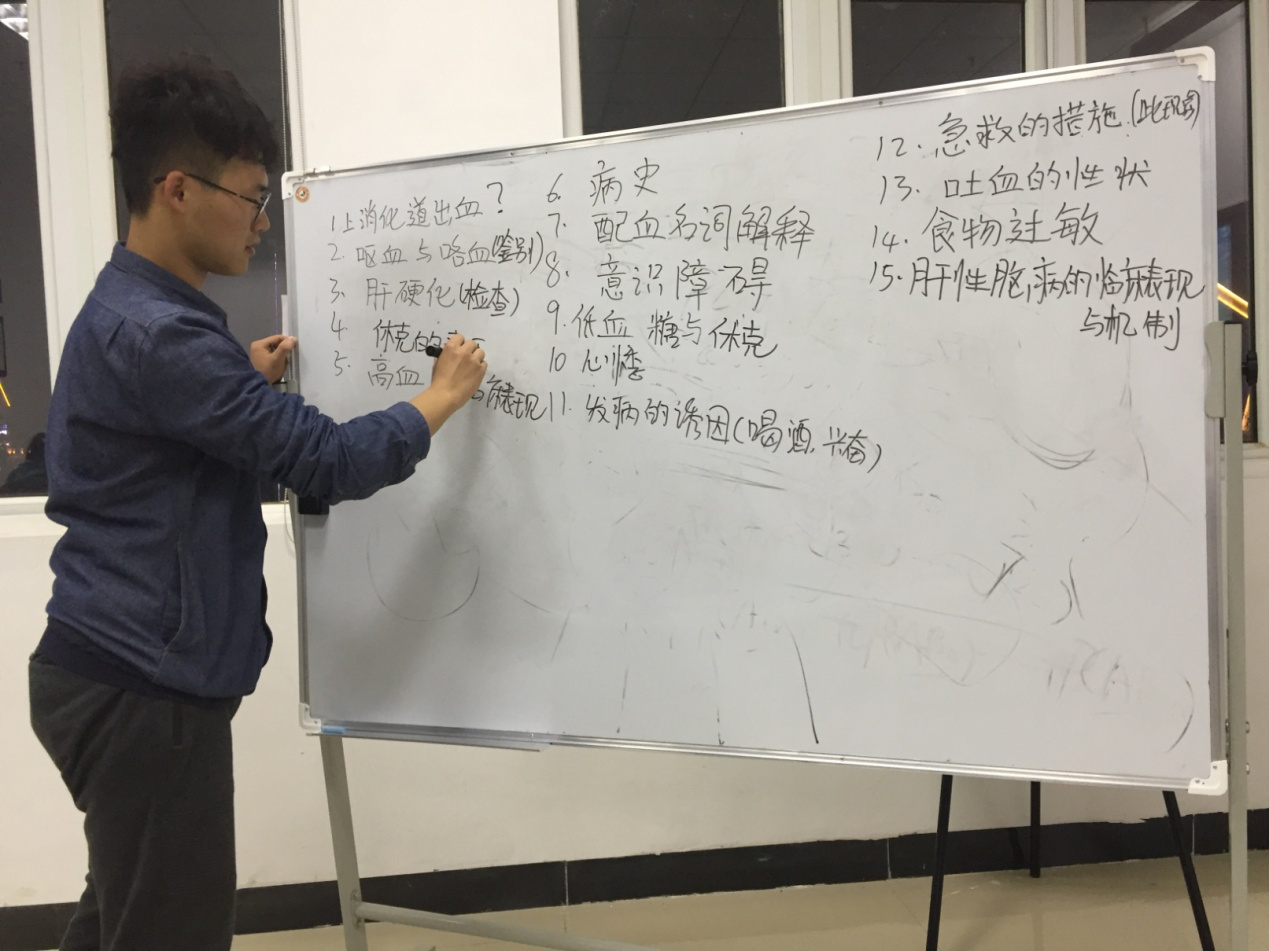 1.上消化道出血?
2. 呕血与咯血(鉴别)
3. 肝硬化(检查)
4. 休克的
5. 高血
表现
6. 病史
7. 配血名词解释
8. 意识障碍
9. 低血糖与休克
10 心悸
11. 发病的诱因(喝酒.兴奋)
12. 急救的措施.
13. 吐血的性状
14. 食物过敏
15. 肝性脑病的临床表现
与机制